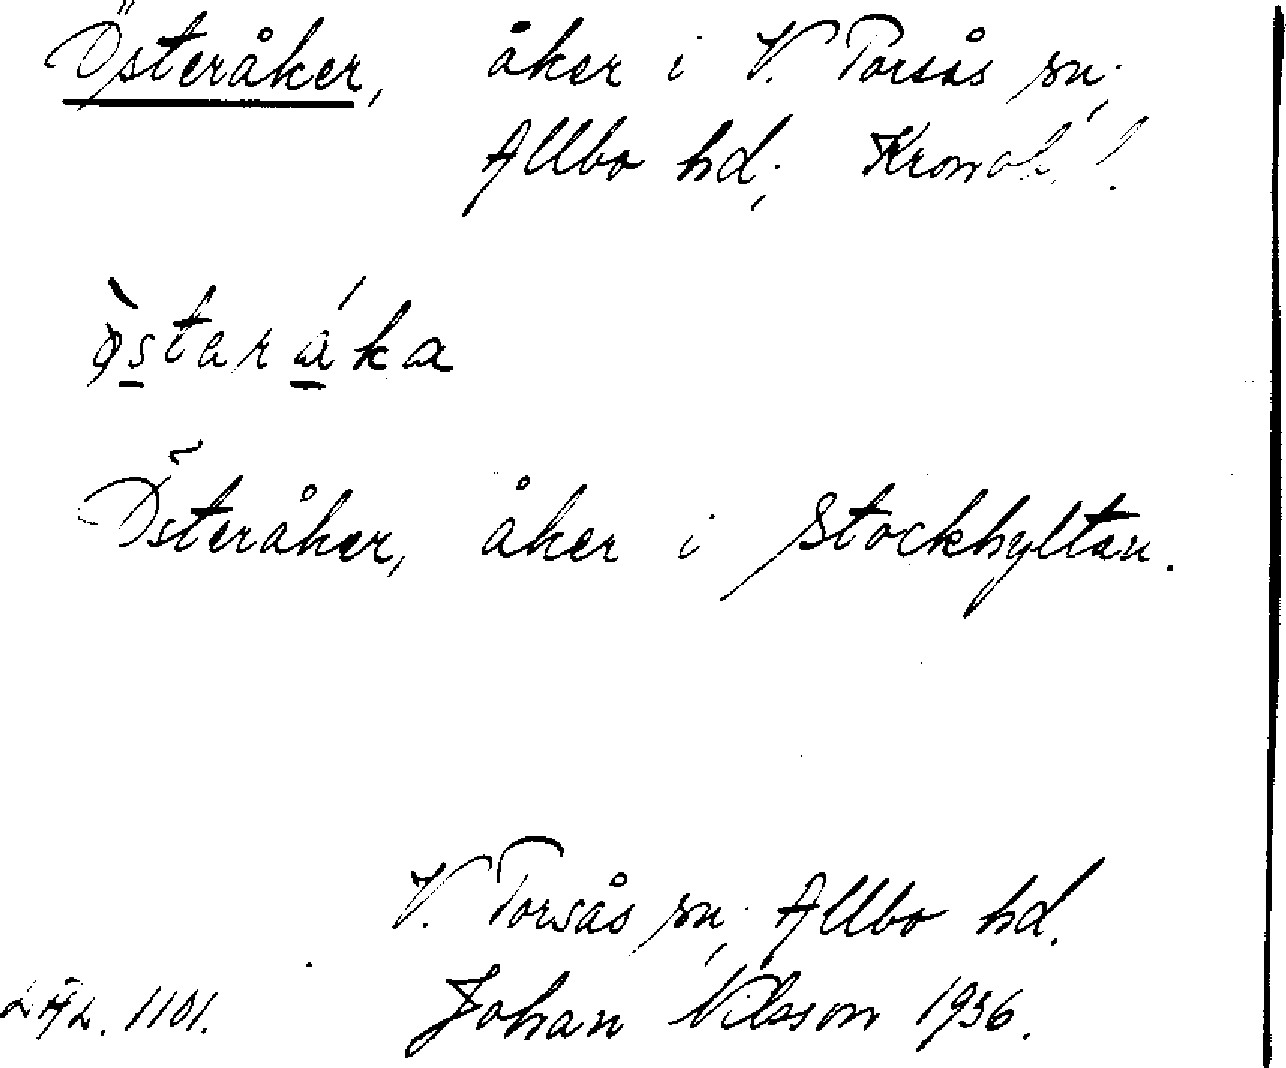 Österåker, åker i V. Torsås sn;
Allbo hd; Kronob. l.
ò̱staráka
Österåker, åker i Stockhyltan.
V. Torsås sn, Allbo hd.
LÄL. 1101. Johan Nilsson 1936.